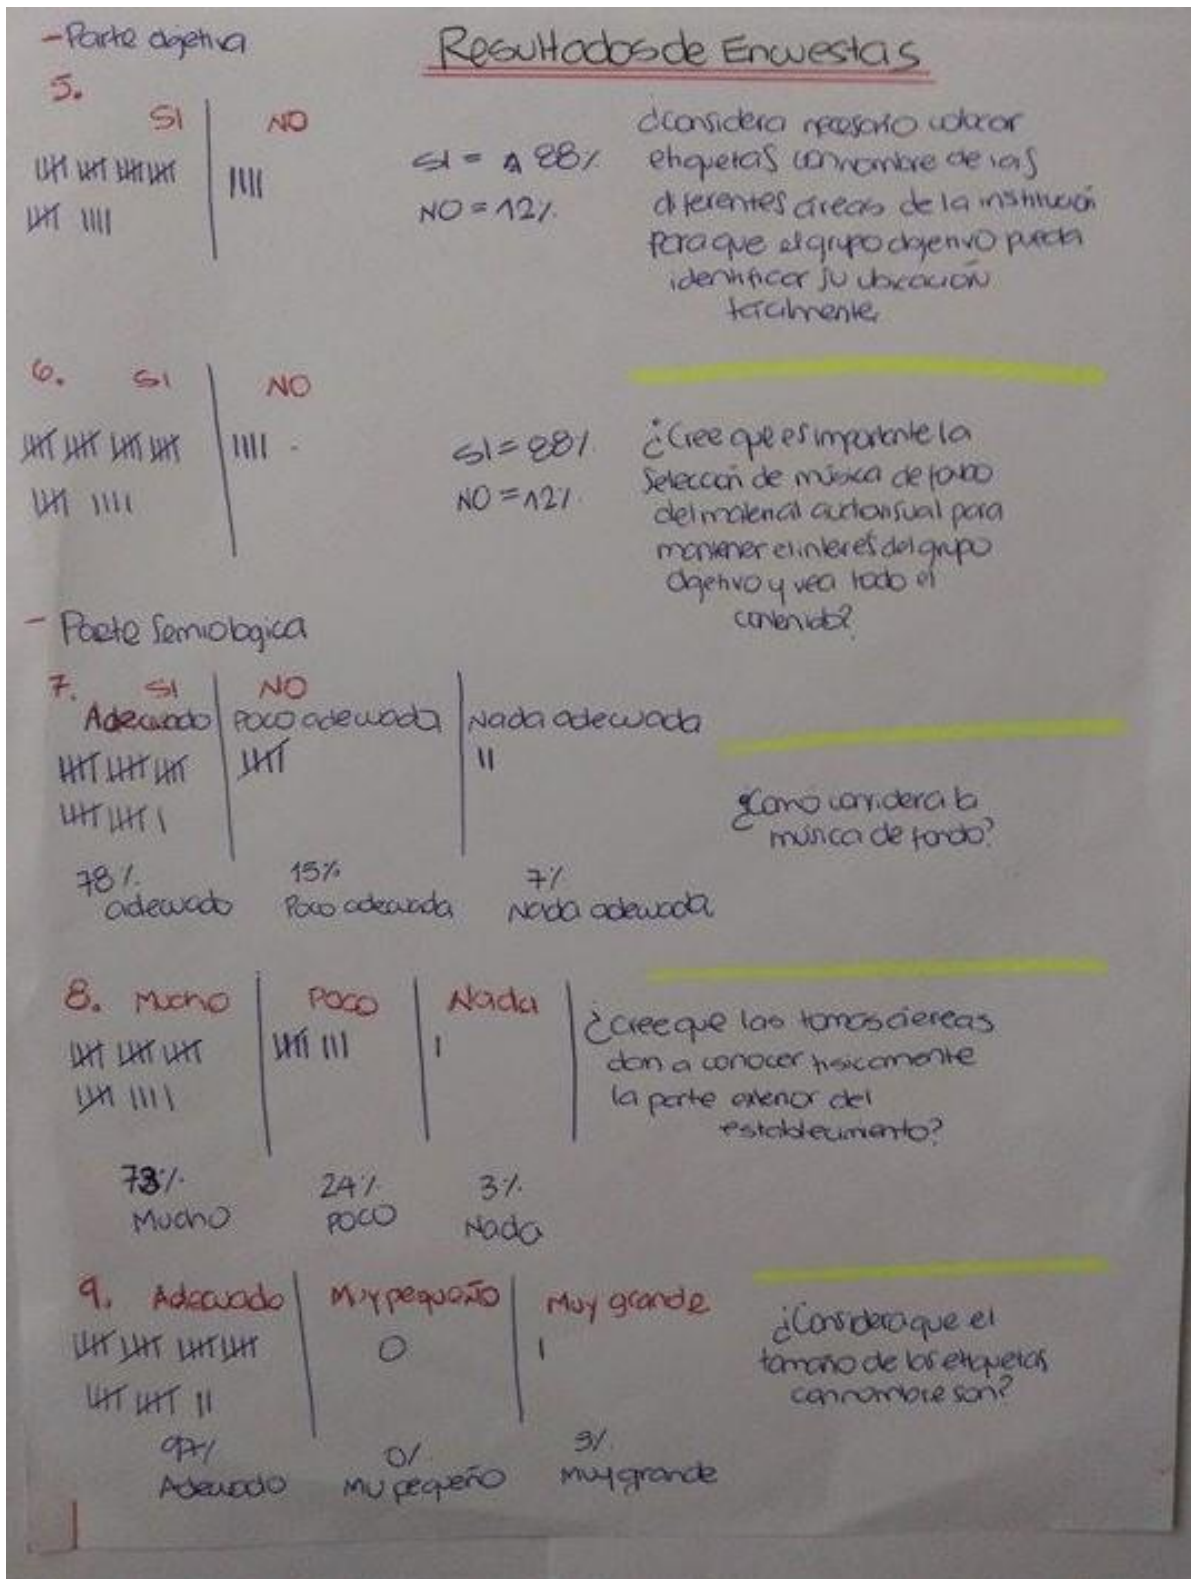 - Parte ogetiva
Resultados de Encuestas
5.
SI NO
SI = 88%
NO = 12%.
¿considera necesario colocar
etiquetas con nombre de las
diferentes áreas de la institución
para que el grupo objetivo pueda
identificar su ubicación
facilmente
6. SI NO
SI = 88%.
NO = 12%.
¿Cree que es importante la
Selección de música de fondo
del material audiovisual para
mantener el interés del grupo
ogetivo y vea todo el
contenido?
- Parte Semiologica
7. SI NO
Adecuado Poco adecuada Nada adecuada
¿Como considera la
música de fondo?
78%. 15% 7%
adecuado Poco adecuada Nada adecuada
8. Mucho Poco Nada
¿cree que las tomas aéreas
dan a conocer fisicamente
la parte exterior del
establecimiento?
73%. 24%. 3%.
Mucho Poco Nada
9. Adecuado Muy pequeño Muy grande
0
¿Considera que el
tamaño de las etiquetas
con nombre son?
97% 0% 3%.
Adecuado Mu pequeño Muy grande